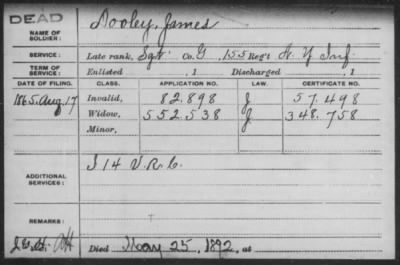 DEAD
NAME OF SOLDIER: Dooley, James
SERVICE: Late rank, Sgt Co. G, 155 Reg't N. Y. Inf.
TERM OF SERVICE: Enlisted , 1 Discharged , 1
DATE OF FILING. CLASS. APPLICATION NO. LAW. CERTIFICATE NO.
1865, Aug. 17 Invalid, 82.898 J 57.498
Widow, 552.538 J 348.758
Minor,
ADDITIONAL SERVICES: I 14 V.R.C.
REMARKS:
Died May 25, 1892, at